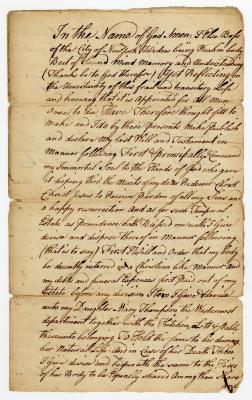 In the Name of God Amen: I Elis Bass
of the City of New York Widdow being Weak in body
But of Sound Mind Memory and Understanding
(Thanks be to God therefore) Upon Reflecting on
the Uncertainty of this frail and transitory Life
and knowing that it is Appointed for all Men
once to die Have Therefore thought fitt to
make and I do by these presents Make Publish
and declare My Last Will and Testament in
Manner following First & principally I Commend
my Immortal Soul to the Hands of God who gave
it hoping thro the Merits of my dear Redeemer Christ
Christ Jesus to Receive Pardon of all my Sins and
a happy resurrection And as for such Temporal
Estate as providence hath Blessed me with I give
devise and dispose thereof in Manner following
(that is to say) First I Will and Order that my body
be decently interred in a Christian like Manner and
my debts and funeral Expences first paid out of my
Estate before any division Item I give & devise
unto my Daughter Mary Thompson the Westermost
department together with the Kitchen, Lott & Stable
thereunto belonging To Hold the same to her during
her Natural Life And in case of her Death Then
I give devise and bequeath the same to the Heirs
of her Body to be Equally shared Among them